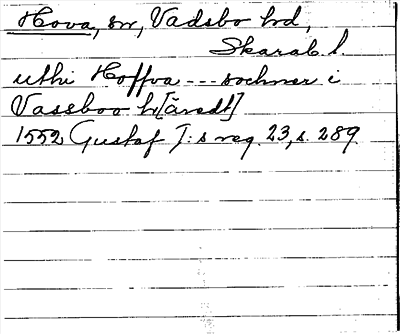 Hova, sn, Vadsbo hd,
Skarab. l.
uthi Hoffva --- sochner i
Vassboo h[äredt]
1552 Gustaf I:s reg. 23, s. 289.